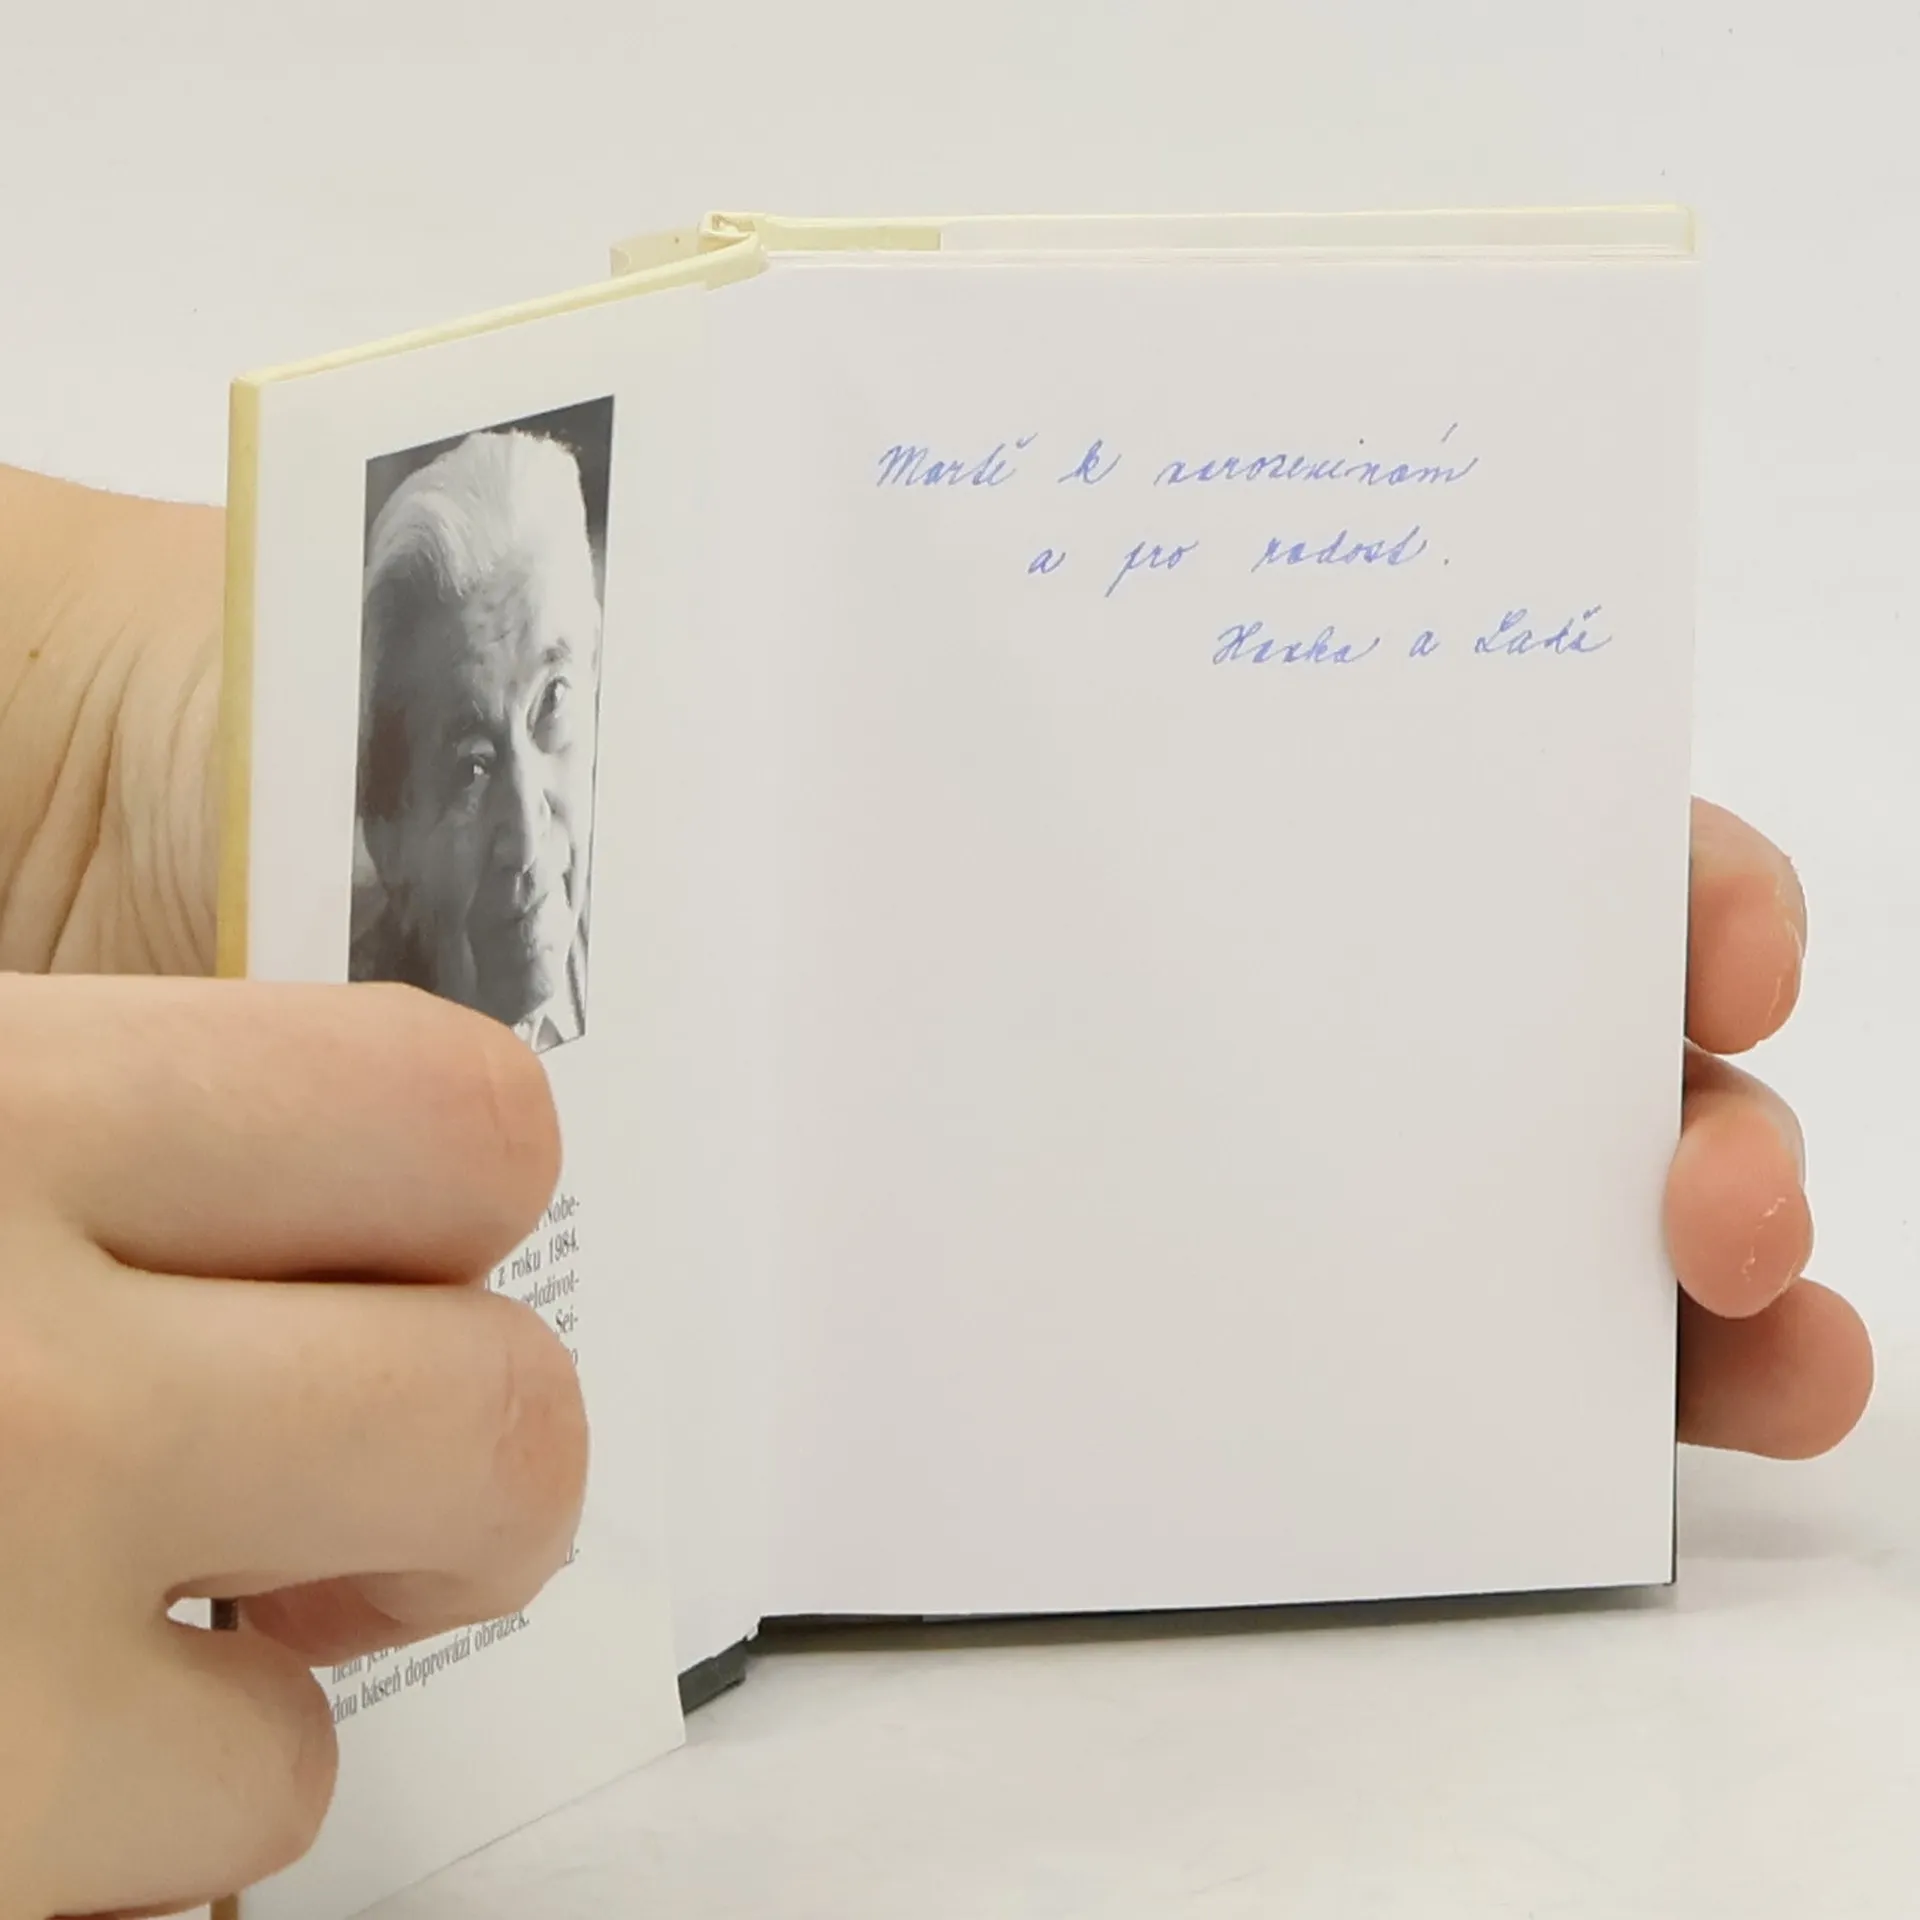 Nobe-
z roku 1984.
celoživot-
Sei-
dou báseň doprovází obrázek.
Martě k narozeninám
a pro radost.
Hanka a Laďa